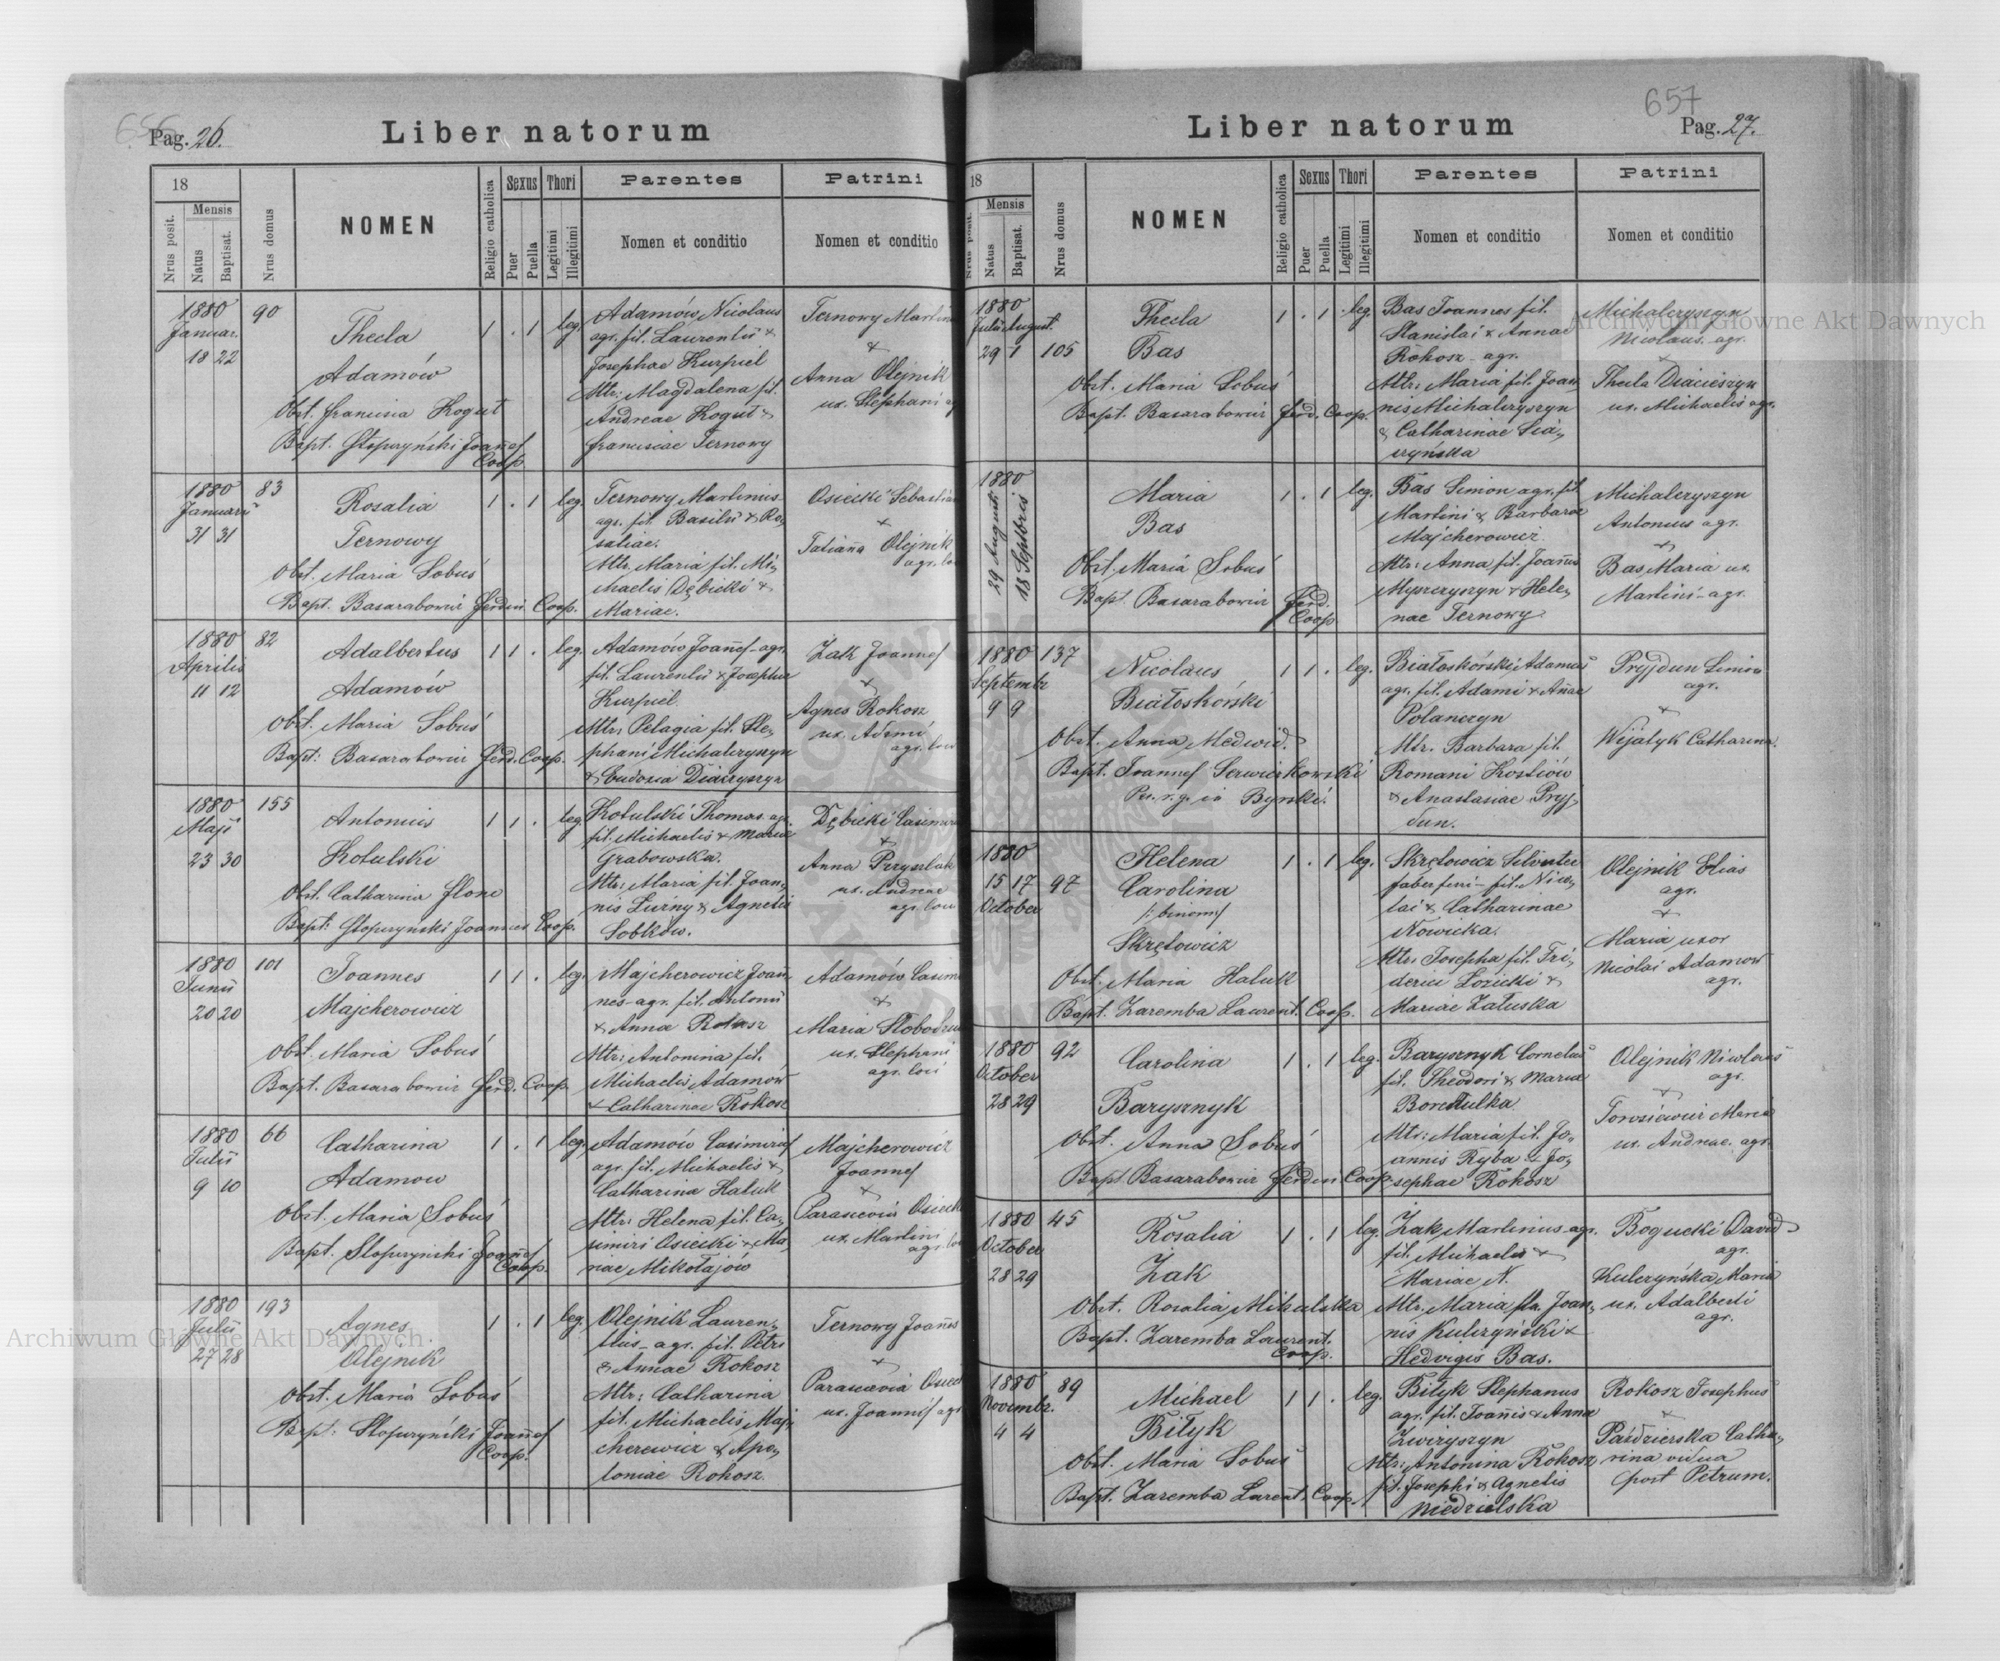 656
Pag. 26.
Liber natorum
18
Nrus posit.
Mensis
Natus
Baptisat.
Nrus domus
NOMEN
Religio catholica
Sexus
Puer
Puella
Thori
Legitimi
Illegitimi
Parentes
Nomen et conditio
Patrini
Nomen et conditio
1880
Januar.
18 22
90
Thecla
Adamów
Obst. Francisca Kogut
Bapt. Słopuzyński Joannes
Coop.
1 . 1 leg.
Adamów Nicolaus
agr. fil. Laurentii &
Josephae Kurpiel
Mtr: Magdalena fil.
Andreae Kogut &
Franciscae Ternowy
Ternowy Martin
&
Anna Olejnik
ux. Stephani
1880
Januarii
31 31
83
Rosalia
Ternowy
Obst. Maria Sobuś
Bapt. Basarabowicz Ferdin. Coop.
1 . 1 leg.
Ternowy Martinus
agr. fil. Basilii & Ro-
saliae.
Mtr. Maria fil. Mi-
chaelis Dębicki &
Mariae.
Osiecki Sebastian
&
Tatianna Olejnik
1880
Aprilis
11 12
82
Adalbertus
Adamów
Obst. Maria Sobuś
Bapt: Basarabowicz Ferd. Coop.
1 1 . leg.
Adamów Joannes agr.
fil. Laurentii & Josephae
Kurpiel.
Mtr: Pelagia fil. Ste-
phani Michalczyszyn
& Eudoxia Diaczyszyn
Żak Joannes
&
Agnes Rokosz
ux. Adami
1880
Maji
23 30
155
Antonius
Kotulski
Obst. Catharina
Bapt: Słopuzyński Joannes Coop.
1 1 . leg
Kotulski Thomas agr.
fil. Michaelis & Mariae
Grabowska.
Mtr: Maria fil. Joan-
nis & Agnetis
Sobków.
Dębicki Casimir
&
Anna
ux. Andreae
1880
Junii
20 20
101
Joannes
Majcherowicz
Obst. Maria Sobuś
Bapt. Basarabowicz Ferd. Coop.
1 1 . leg.
Majcherowicz Joan-
nes agr. fil. Antonii
& Anna Rokosz
Mtr: Antonina fil.
Michaelis Adamów
& Catharinae Rokosz
Adamów Casim
&
Maria
ux. Stephani
1880
Julii
9 10
66
Catharina
Adamow
Obst. Maria Sobuś
Bapt. Słopuzyński Joannes
Coop.
1 . 1 leg.
Adamów Casimirus
agr. fil. Michaelis &
Catharina Haluk
Mtr: Helena fil. Ca-
simiri Osiecki & Ma-
riae Mikołajów
Majcherowicz
Joannes
&
Parascevia Osiecki
ux. Martini
1880
Julii
27 28
193
Agnes
Olejnik
Obst. Maria Sobuś
Bapt: Słopuzyński Joannes
Coop.
1 . 1 leg.
Olejnik Lauren-
tius agr. fil. Petri
& Annae Rokosz
Mtr: Catharina
fil. Michaelis Maj-
cherowicz & Apo-
loniae Rokosz.
Ternowy Joannes
&
Parascevia
ux. Joannis agr
657
Pag. 27.
Liber natorum
18
Nrus posit.
Mensis
Natus
Baptisat.
Nrus domus
NOMEN
Religio catholica
Sexus
Puer
Puella
Thori
Legitimi
Illegitimi
Parentes
Nomen et conditio
Patrini
Nomen et conditio
1880
Julii August.
29 1
105
Thecla
Bas
Obst. Maria Sobuś
Bapt. Basarabowicz Ferd. Coop.
1 . 1 leg.
Bas Joannes fil.
Stanislai & Annae
Rokosz agr.
Mtr: Maria fil. Joan-
nis Michalczyszyn
& Catharinae
Michalczyszyn
Nicolaus agr.
&
Thecla Diaczyszyn
ux. Michaelis agr.
1880
29 Augusti
18 Septbris
Maria
Bas
Obst. Maria Sobuś
Bapt. Basarabowicz Ferd.
Coop
1 . 1 leg.
Bas Simon agr. fil.
Martini & Barbarae
Majcherowicz
Mtr: Anna fil. Joannis
Myszczyszyn & Hele-
nae Ternowy.
Michalczyszyn
Antonius agr.
&
Bas Maria ux.
Martini agr.
1880
Septembr
9 9
137
Nicolaus
Białoskórski
Obst. Anna Medwid.
Bapt. Joannes
1 1 . leg.
Białoskórski Adamus
agr. fil. Adami & Annae
Polanczyn
Mtr. Barbara fil.
Romani Kostiów
& Anastasiae Pryj-
dun.
Pryjdun Simon
agr.
&
Wijatyk Catharina.
1880
15 17
October
97
Helena
Carolina
/: binomis
Skrętowicz
Obst. Maria Haluk
Bapt. Zaremba Laurent. Coop.
1 . 1 leg.
Skrętowicz Silvester
faber feri fil. Nico-
lai & Catharinae
Nowicka.
Mtr: Josepha fil. Fri-
derici Łozicki &
Mariae Załuska
Olejnik Elias
agr.
&
Maria uxor
Nicolai Adamow
agr.
1880
October
28 29
92
Carolina
Barysznyk
Obst. Anna Sobuś
Bapt Basarabowicz Ferdin Coop.
1 . 1 leg.
Barysznyk Cornelius
fil. Theodori & Mariae
Mtr: Maria fil. Jo-
annis Ryba & Jo-
sephae Rokosz
Olejnik Nicolaus
agr.
&
Maria
ux. Andreae agr.
1880
October
28 29
45
Rosalia
Żak
Obst. Rosalia Mihalska
Bapt. Zaremba Laurent.
Coop.
1 . 1 leg.
Żak Martinus agr.
fil. Michaelis &
Mariae N.
Mtr. Maria fla. Joan-
nis Kulczyński &
Hedvigis Bas.
Bogucki David
agr.
Kulczyńska Maria
ux. Adalberti
agr.
1880
Novembr.
4 4
89
Michael
Bilyk
Obst. Maria Sobuś
Bapt. Zaremba Larent. Coop.
1 1 . leg.
Bilyk Stephanus
agr. fil. Joannis & Anna
Mtr: Antonina Rokosz
fil. Josephi & Agnetis
Niedzielska
Rokosz Josephus
&
Paździerska Catha-
rina vidua
post Petrum.
Archiwum Główne Akt Dawnych
Archiwum Główne Akt Dawnych